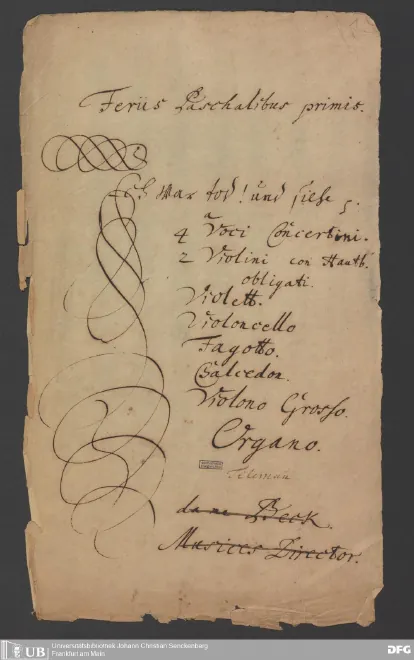 Feriis Paschalibus primis.
Ich war tod! und siehe
4 Voci Concertini.
2 Violini con Hautb.
obligati.
Violett.
Violoncello
Fagotto.
Calcedon.
Violono Grosso.
Organo.
Teleman
Beck.
Musices Director.
UB
Universitätsbibliothek Johann Christian Senckenberg
Frankfurt am Main
DFG